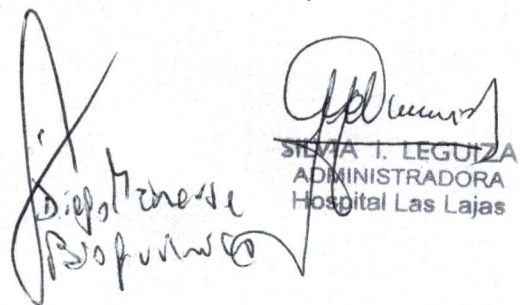 SILVIA I. LEGUIZA
ADMINISTRADORA
Hospital Las Lajas
Diego
Bioquímico